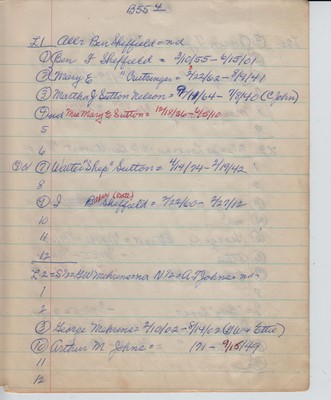 BSS 4
L1 All = Ben Sheffield = nd
1 Ben F Sheffield = 3/10/55 - 6/15/01
2 Mary E " 2/22/62 - 7/9/41
3 Martha J Sutton Nelson = 9/ /64 - 7/9/40 (C John)
4 nd Mrs Mary E Sutton = 10/18/26 - 2/5/10
5
6
7 Walter "Shep" Sutton = 4/14/74 - 3/19/42
8
9 I Sheffield = 7/22/60 - 2/27/12
10
11
12
L2 = S 1/2 = GW N 1/2 = A T Johns = nd
1
2
5 George = 2/10/02 - 5/14/02 (GW + Ettie)
10 Arthur M Johns = - 9/15/49
11
12